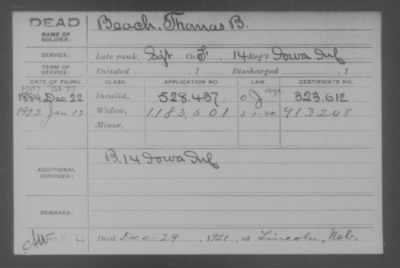 DEAD
NAME OF SOLDIER:
Beach, Thomas B.
SERVICE:
Late rank, Sgt Co. F, 14 Reg't Iowa Inf
TERM OF SERVICE:
Enlisted , 1 Discharged , 1
DATE OF FILING. CLASS. APPLICATION NO. LAW CERTIFICATE NO.
1884 Dec 22 Invalid, 528.437 323.612
1922 Jan 12 Widow, 1183.501 5-1-20 913208
Minor,
ADDITIONAL SERVICES:
B. 14 Iowa Inf
REMARKS:
Died Dec-29, 1921, at Lincoln, Neb.